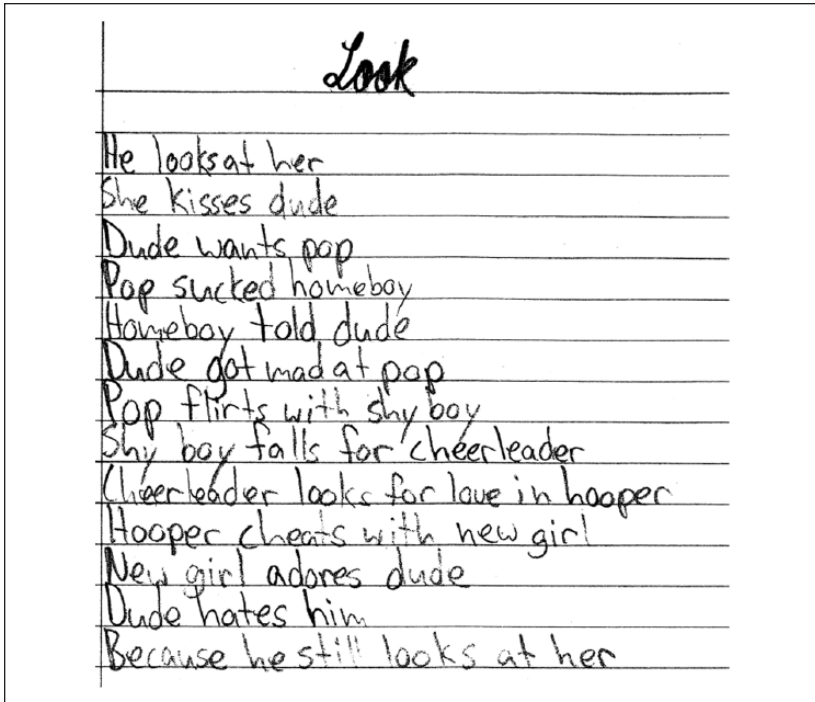 Look
He looks at her
She kisses dude
Dude wants pop
Pop sucked homeboy
Homeboy told dude
Dude got mad at pop
Pop flirts with shy boy
Shy boy falls for cheerleader
Cheerleader looks for love in hooper
Hooper cheats with new girl
New girl adores dude
Dude hates him
Because he still looks at her